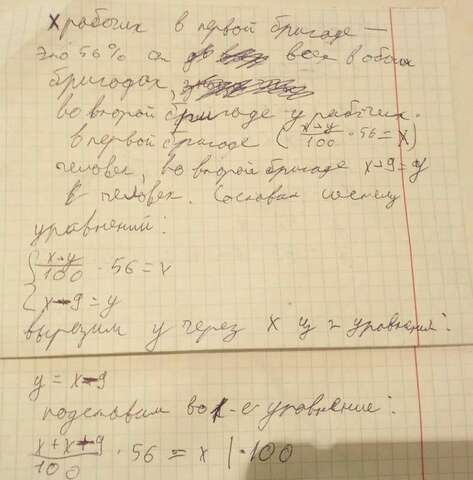 x рабочих в первой бригаде —
это 56% от всех в обеих
бригадах,
во второй бригаде y рабочих.
в первой бригаде (x+y/100 · 56 = x)
человек, во второй бригаде x-9=y
человек. Составим систему
уравнений:
{ x+y/100 · 56 = x
{ x-9=y
выразим y через x из 2 уравнения:
y = x-9
подставим во 1-е уравнение:
x+x-9/100 · 56 = x | · 100